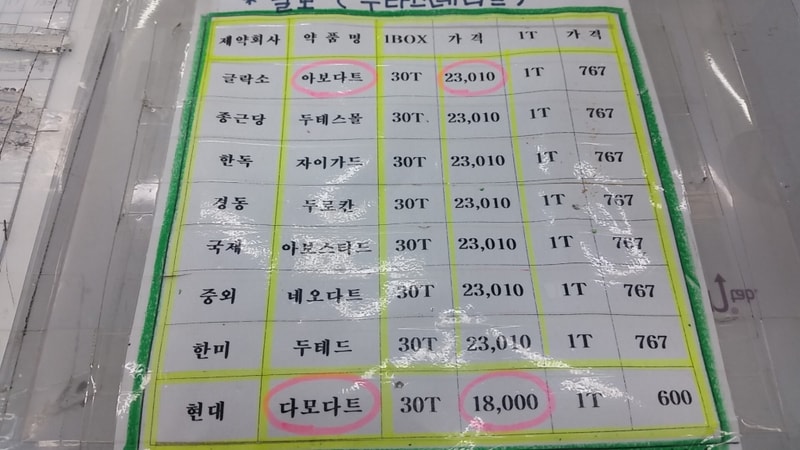 제약회사 약품명 1BOX 가격 1T 가격
글락소 아보다트 30T 23,010 1T 767
종근당 두테스몰 30T 23,010 1T 767
한독 자이가드 30T 23,010 1T 767
경동 두로칸 30T 23,010 1T 767
국제 아보스타드 30T 23,010 1T 767
중외 네오다트 30T 23,010 1T 767
한미 두테드 30T 23,010 1T 767
현대 다모다트 30T 18,000 1T 600